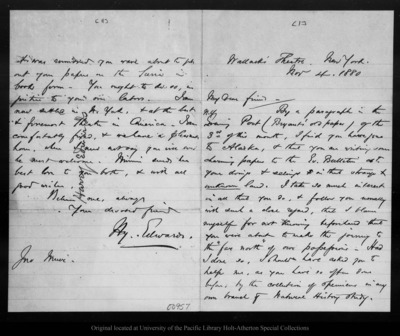 (1)
Wallack's Theatre. New York.
Nov 4. 1880
My Dear friend
By a paragraph in the
Evening Post (Bryant's old paper) of the
3rd of this month, I find you have gone
to Alaska, & that you are writing some
charming papers to the Ev. Bulletin as to
your doings & seeings in that strange &
unknown land. I take so much interest
in all that you do, & follow you usually
with such a close regard, that I blame
myself for not knowing beforehand that
you were about to make the journey to
the far north of our possessions. Had
I done so, I should have asked you to
help me, as you have so often done
before, by the collection of specimens in my
own branch of Natural History Study.
(3)
it was rumoured you were about to put
out your papers on the Sierra in
book form. You ought to do so, in
justice to your own labor. I am
now settled in N. York, & at the best
& foremost Theatre in America. I am
comfortably fixed, & we have a pleasant
home, where I need not say you will ever
be most welcome. Mrs. sends her
best love to you both, & with all
good wishes.
Believe me, always
Your devoted friend
Hy. Edwards.
Jno Muir.
[Harry Edwards]
00957
Original located at University of the Pacific Library Holt-Atherton Special Collections